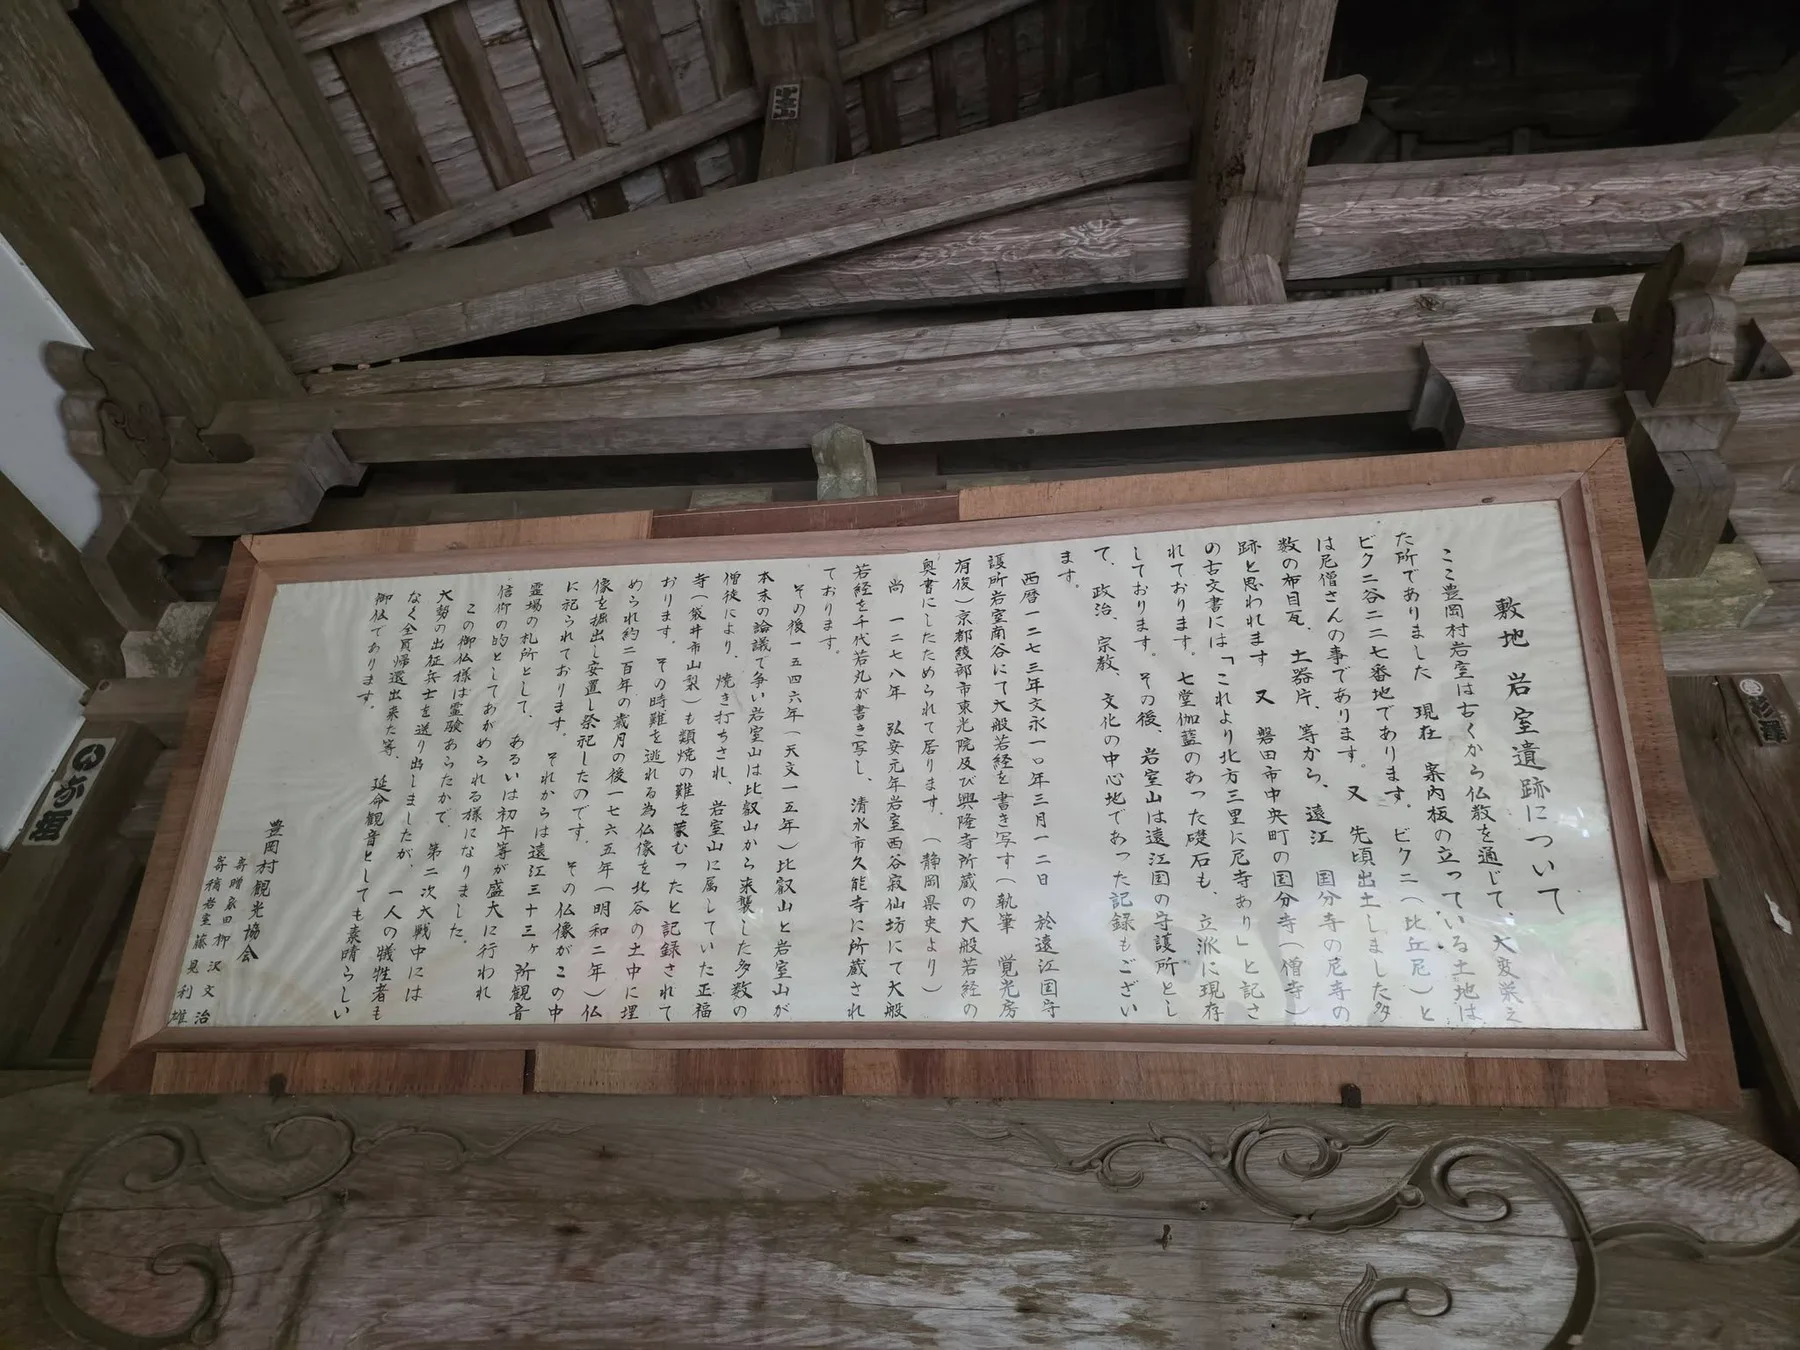 敷地 岩室遺跡について
ここ豊岡村岩室は古くから仏教を通じて、大変栄え
た所でありました 現在 案内板の立っている土地は
ビクニ谷二二七番地であります。ビクニ(比丘尼)と
は尼僧さんの事であります。又 先頃出土しました多
数の布目瓦、土器片、等から、遠江 国分寺の尼寺の
跡と思われます 又 磐田市中央町の国分寺(僧寺)
の古文書には「これより北方三里に尼寺あり」と記さ
れております。七堂伽藍のあった礎石も、立派に現存
しております。その後、岩室山は遠江国の守護所とし
て、政治、宗教、文化の中心地であった記録もござい
ます。
西暦一二七三年文永一〇年三月一二日 於遠江国守
護所岩室南谷にて大般若経を書き写す(執筆 覚光房
有俊)京都綾部市東光院及び興隆寺所蔵の大般若経の
奥書にしたためられて居ります。(静岡県史より)
尚 一二七八年 弘安元年岩室西谷寂仙坊にて大般
若経を千代若丸が書き写し、清水市久能寺に所蔵され
ております。
その後一五四六年(天文一五年)比叡山と岩室山が
本末の論議で争い岩室山は比叡山から来襲した多数の
僧徒により、焼き打ちされ、岩室山に属していた正福
寺(袋井市山梨)も類焼の難を蒙むったと記録されて
おります。その時難を逃れる為仏像を北谷の土中に埋
められ約二百年の歳月の後一七六五年(明和二年)仏
像を掘出し安置し祭祀したのです。その仏像がこの中
に祀られております。それからは遠江三十三ヶ所観音
霊場の札所として、あるいは初午等が盛大に行われ
信仰の的としてあがめられる様になりました。
この御仏様は霊験あらたかで、第二次大戦中には
大勢の出征兵士を送り出しましたが、一人の犠牲者も
なく全員帰還出来た等、延命観音としても素晴らしい
御仏であります。
豊岡村観光協会
寄贈 家田 柳沢文治
寄稿 岩室 藤見利雄